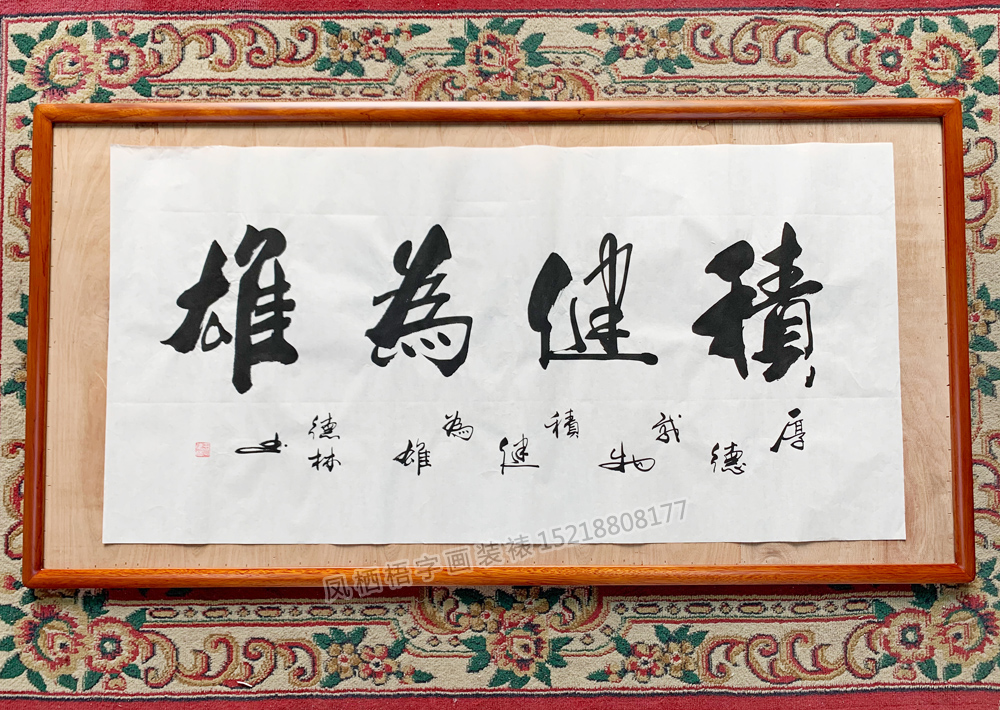 積健為雄
厚德載物積健為雄
德林書
凤栖梧字画装裱 15218808177